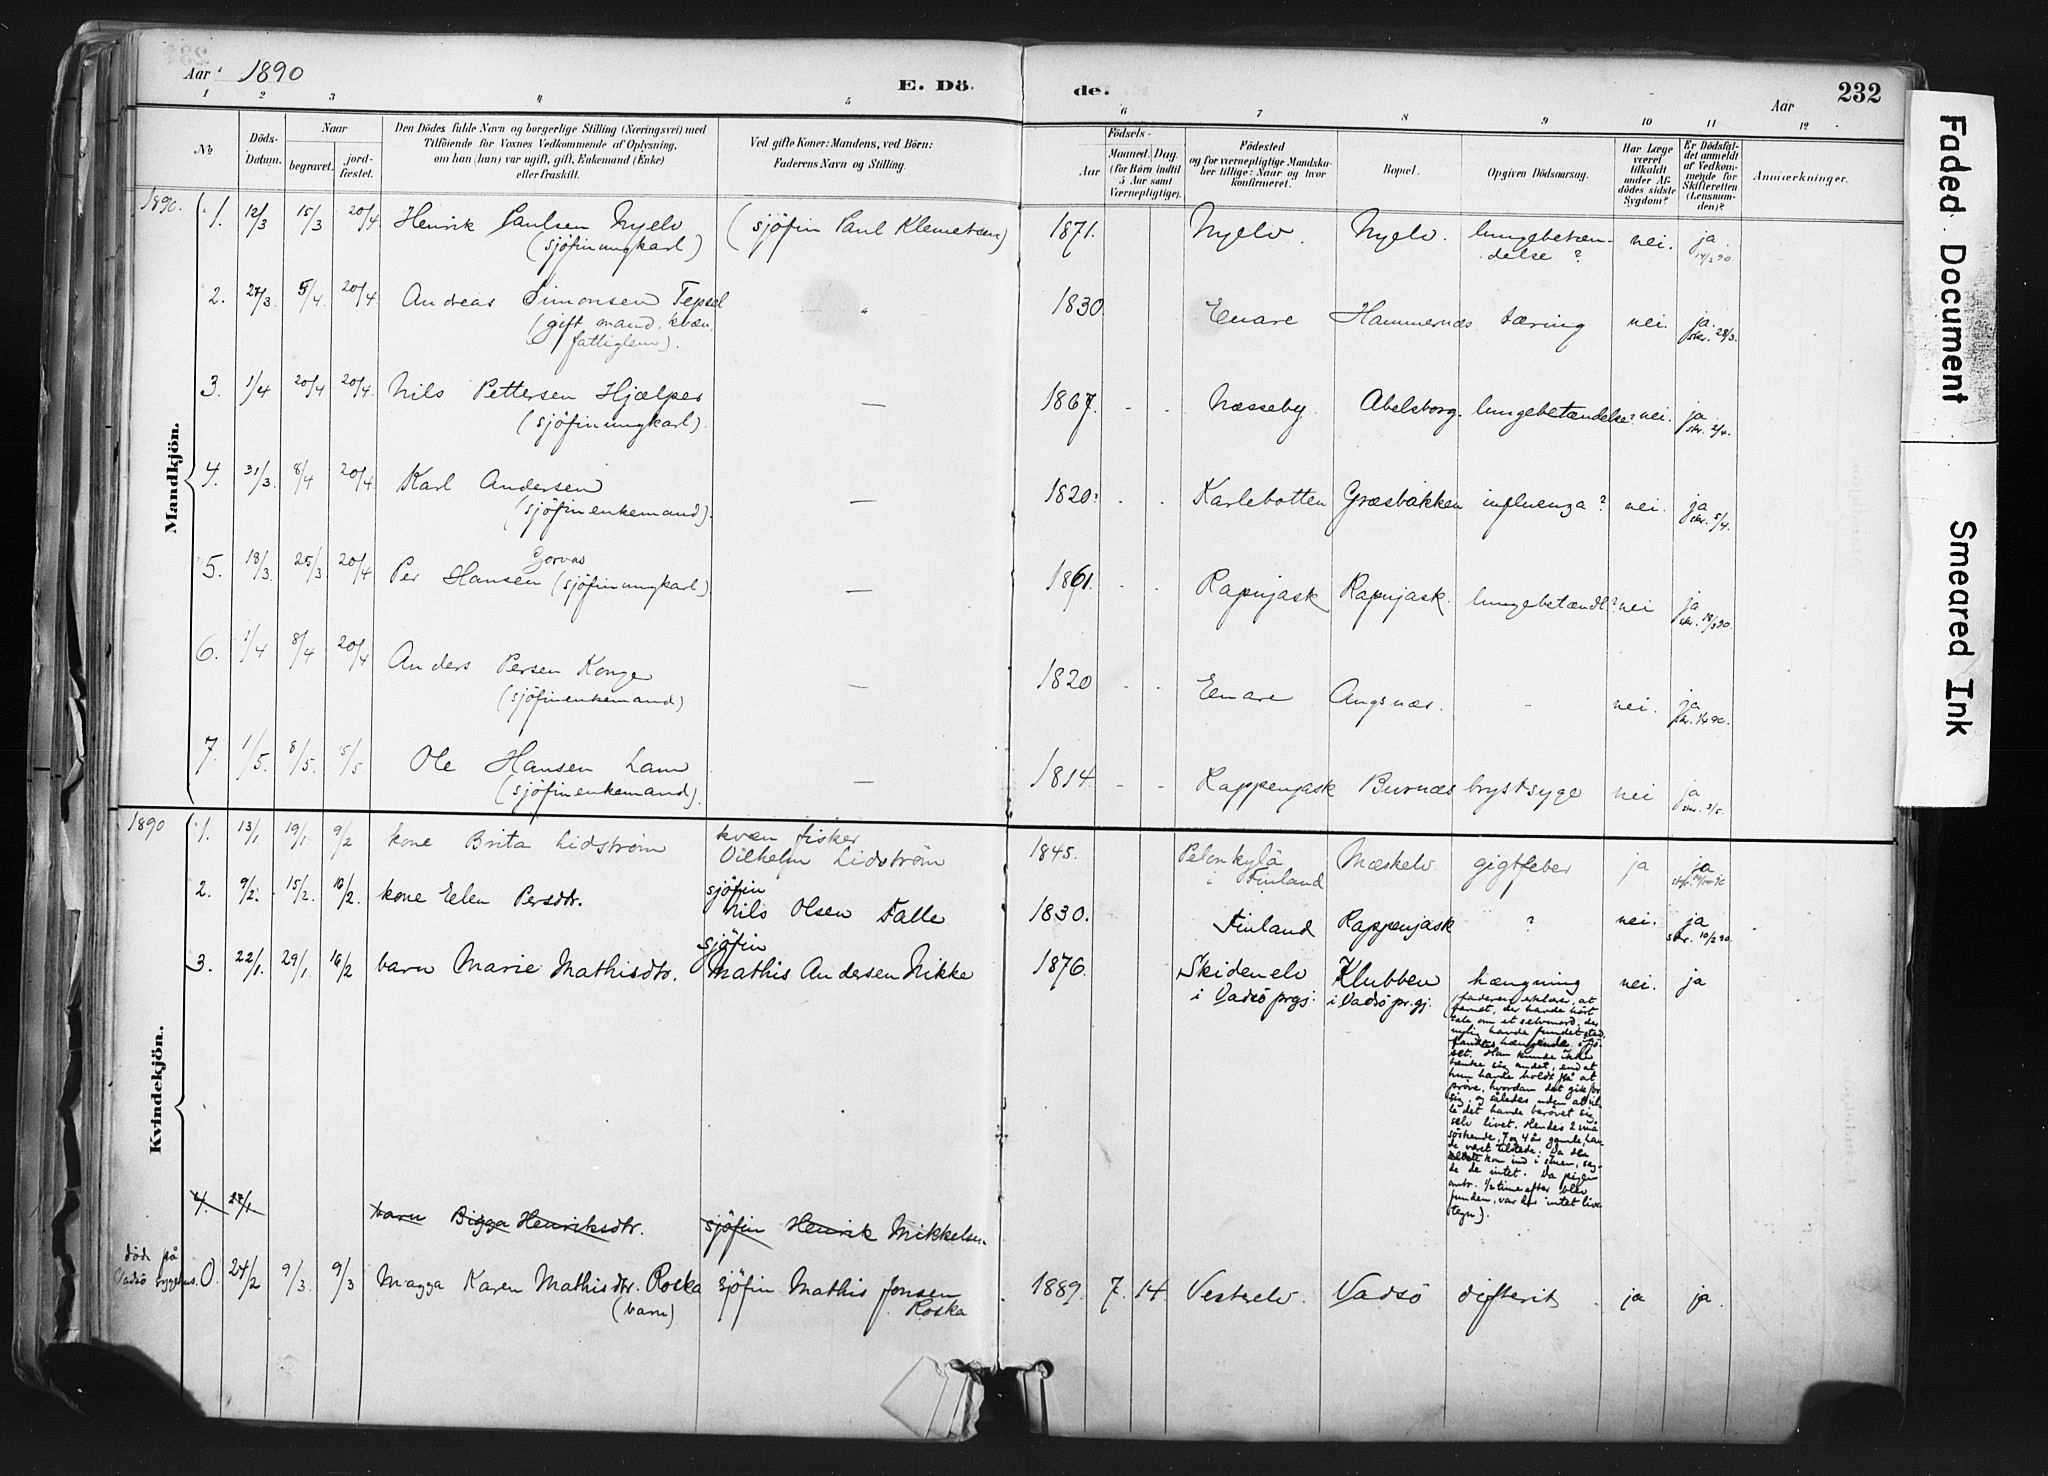 Aar 1890
E. Dö
de.
Aar
232
1 2 3 4 5 6 7 8 9 10 11 12
No
Döds-Datum.
Naar
begravet.
jord-fæstet.
Den Dödes fulde Navn og borgerlige Stilling (Næringsvei) med
Tilföiende for Voxnes Vedkommende af Oplysning,
om han (hun) var ugift, gift, Enkemand (Enke)
eller fraskilt.
Ved gifte Koner: Mandens, ved Börn:
Faderens Navn og Stilling.
Födsels-
Aar
Maaned. Dag.
(for Börn indtil
5 Aar samt
Værnepligtige).
Födested
og for værnepligtige Mandska-
ber tillige: Naar og hvor
konfirmeret.
Bopæl.
Opgiven Dödsaarsag.
Har Læge
været
tilkaldt
under Af-
dödes sidste
Sygdom?
Er Dödsfal-
det anmeldt
af Vedkom-
mende for
Skifteretten
(Lensman-
den)?
Anmærkninger.
Mandkjön.
1890. 1. 12/3 15/3 20/4 Henrik Paulsen Nyelv (sjöfin Paul Klemetsen) 1871. Nyelv. Nyelv. lungebetæn- nei. ja
(sjöfin ungkarl) delse ? 14/3 90
2. 27/3. 5/4. 20/4 Andreas Simonsen Tepsel " 1830 Enare Hammernæs tæring nei. ja
(gift mand. kvæn skr. 28/3.
fattiglem).
3. 1/4 20/4 20/4 Nils Pettersen Hjælper — 1867. - - Næsseby. Abelsborg. lungebetændelse? nei. ja
(sjöfin ungkarl) skr. 2/4.
4. 31/3. 8/4 20/4 Karl Andersen — 1820? - - Karlebotten Græsbakken influenza? nei. ja
(sjöfin enkemand). skr. 5/4.
5. 18/3. 25/3 20/4 Per Hansen Gorvas (sjöfin ungkarl) — 1861. - - Rapujask Rapujask. lungebetændl.? nei ja
skr. 18/3 90.
6. 1/4 8/4 20/4 Anders Persen Konge — 1820 - - Enare Angsnæs. - nei. ja
(sjöfin enkemand)
7. 1/5. 8/5. 15/5. Ole Hansen Lam — 1814. - - Rappenjask Burnæs brystsyge nei ja
(sjöfin enkemand). skr. 3/5.
Kvindekjön.
1890 1. 13/1 19/1 9/2 kone Brita Lidström kvæn fisker 1845. Pelonkylä Mæskelv gigtfeber ja ja
Vilhelm Lidström i Finland
2. 9/2. 15/2. 16/2. kone Elen Persdtr. sjöfin 1830. Finland Rappenjask ? nei. ja
Nils Olsen Falle skr. 10/2 90.
3. 22/1. 29/1 16/2 barn Marie Mathisdtr. sjöfin 1876. Skidenelv Klubben hængning nei. ja
Mathis Andersen Nikke i Vadsö prgj: i Vadsö pr.gj.
(faderen erklærer, at
barnet, der havde hört
tale om et selvmord, der
nylig havde fundet sted,
fandtes hængende i fjö-
set. Han kunde ikke
tænke sig andet, end at
hun havde holdt på at
pröve, hvordan det gik for
sig, og således uden at vil-
le det havde berövet sig
selv livet. Hendes 2 små
söskende, 7 og 4 år gamle, hav-
de været tilstede. Da de
kom ind i stuen, sag-
de de intet. Da pigen
omtr. 1/2 time efter blev
funden, var der intet livs-
tegn).
4. 27/1 barn Bigga Henriksdtr. sjöfin Henrik Mikkelsen
död på
Vadsö sygehus. 0. 24/2 9/3 9/3 Magga Karen Mathisdtr. Roska sjöfin Mathis Jonsen 1889. 7. 14. Vestrelv. Vadsö difterit ja ja.
(barn) Roska
Faded Document
Smeared Ink